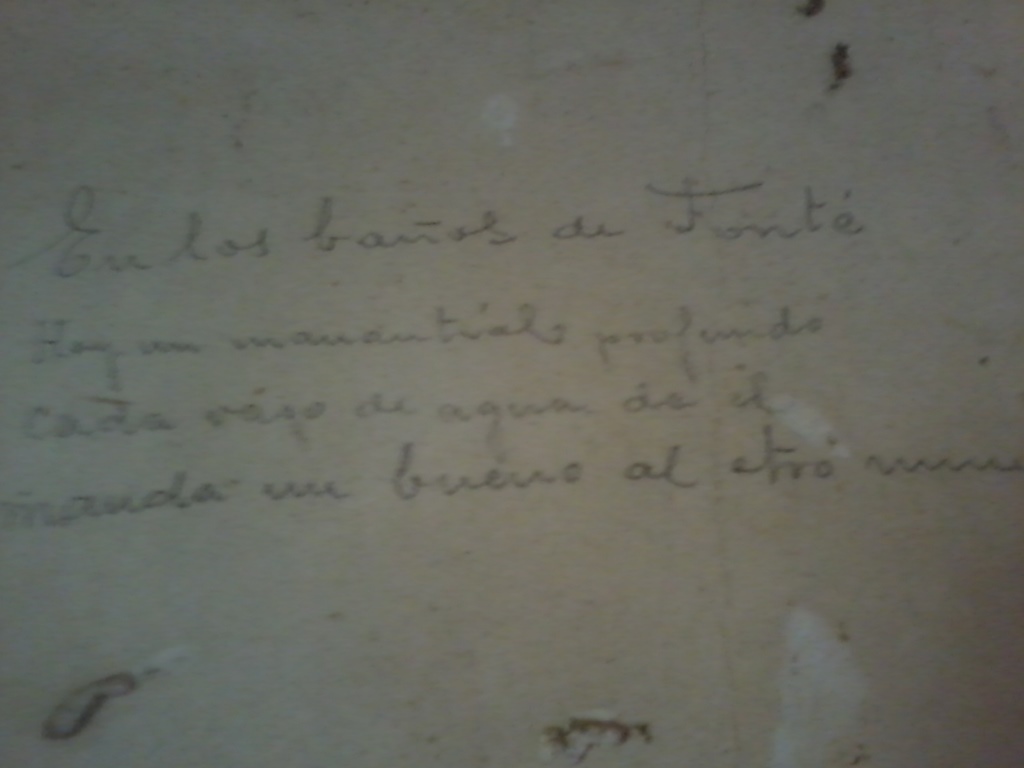 En los baños de Fonté
Hay un manantial profundo
cada vaso de agua de él
manda un bueno al otro